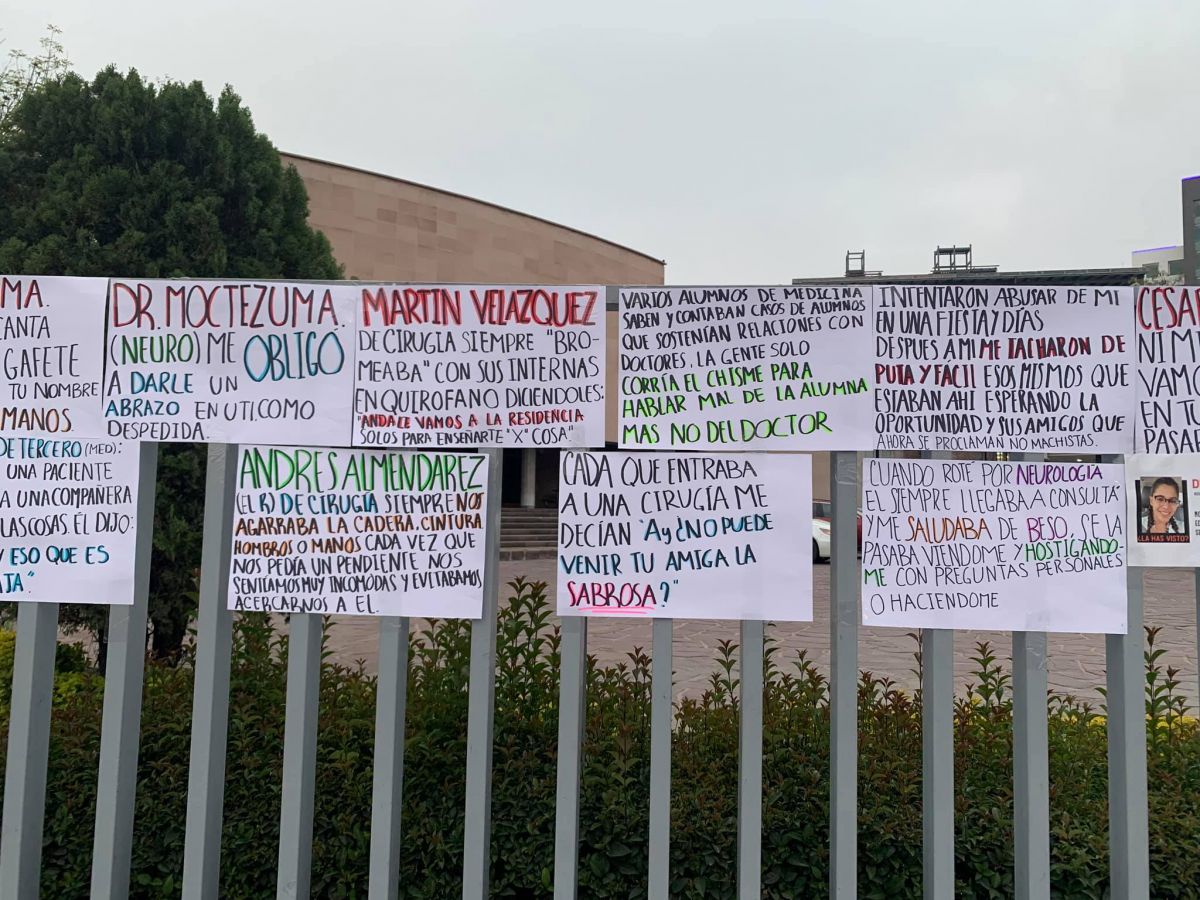 MA.
CANTA
GAFETE
TU NOMBRE
MANOS.
DR. MOCTEZUMA.
(NEURO) ME OBLIGÓ
A DARLE UN
ABRAZO EN UTI COMO
DESPEDIDA.
MARTIN VELAZQUEZ
DE CIRUGIA SIEMPRE "BRO-
MEABA" CON SUS INTERNAS
EN QUIROFANO DICIENDOLES:
"ANDALE VAMOS A LA RESIDENCIA
SOLOS PARA ENSEÑARTE "X" COSA"
VARIOS ALUMNOS DE MEDICINA
SABEN Y CONTABAN CASOS DE ALUMNOS
QUE SOSTENÍAN RELACIONES CON
DOCTORES. LA GENTE SOLO
CORRÍA EL CHISME PARA
HABLAR MAL DE LA ALUMNA
MAS NO DEL DOCTOR
INTENTARON ABUSAR DE MI
EN UNA FIESTA Y DÍAS
DESPUES A MI ME TACHARON DE
PUTA Y FÁCIL ESOS MISMOS QUE
ESTABAN AHI ESPERANDO LA
OPORTUNIDAD Y SUS AMIGOS QUE
AHORA SE PROCLAMAN NO MACHISTAS.
CESA
NI M
VAMO
EN T
PASA
DE TERCERO (MED):
UNA PACIENTE
A UNA COMPAÑERA
LAS COSAS. EL DIJO:
Y ESO QUE ES
JA".
ANDRES ALMENDAREZ
(EL R) DE CIRUGÍA SIEMPRE NOS
AGARRABA LA CADERA, CINTURA
HOMBROS O MANOS CADA VEZ QUE
NOS PEDÍA UN PENDIENTE NOS
SENTÍAMOS MUY INCOMODAS Y EVITABAMOS
ACERCARNOS A EL.
CADA QUE ENTRABA
A UNA CIRUGÍA ME
DECÍAN "AY ¿NO PUEDE
VENIR TU AMIGA LA
SABROSA?"
CUANDO ROTÉ POR NEUROLOGÍA
EL SIEMPRE LLEGABA A CONSULTA
Y ME SALUDABA DE BESO, SE LA
PASABA VIENDOME Y HOSTIGANDO-
ME CON PREGUNTAS PERSONALES
O HACIENDOME
¿LA HAS VISTO?